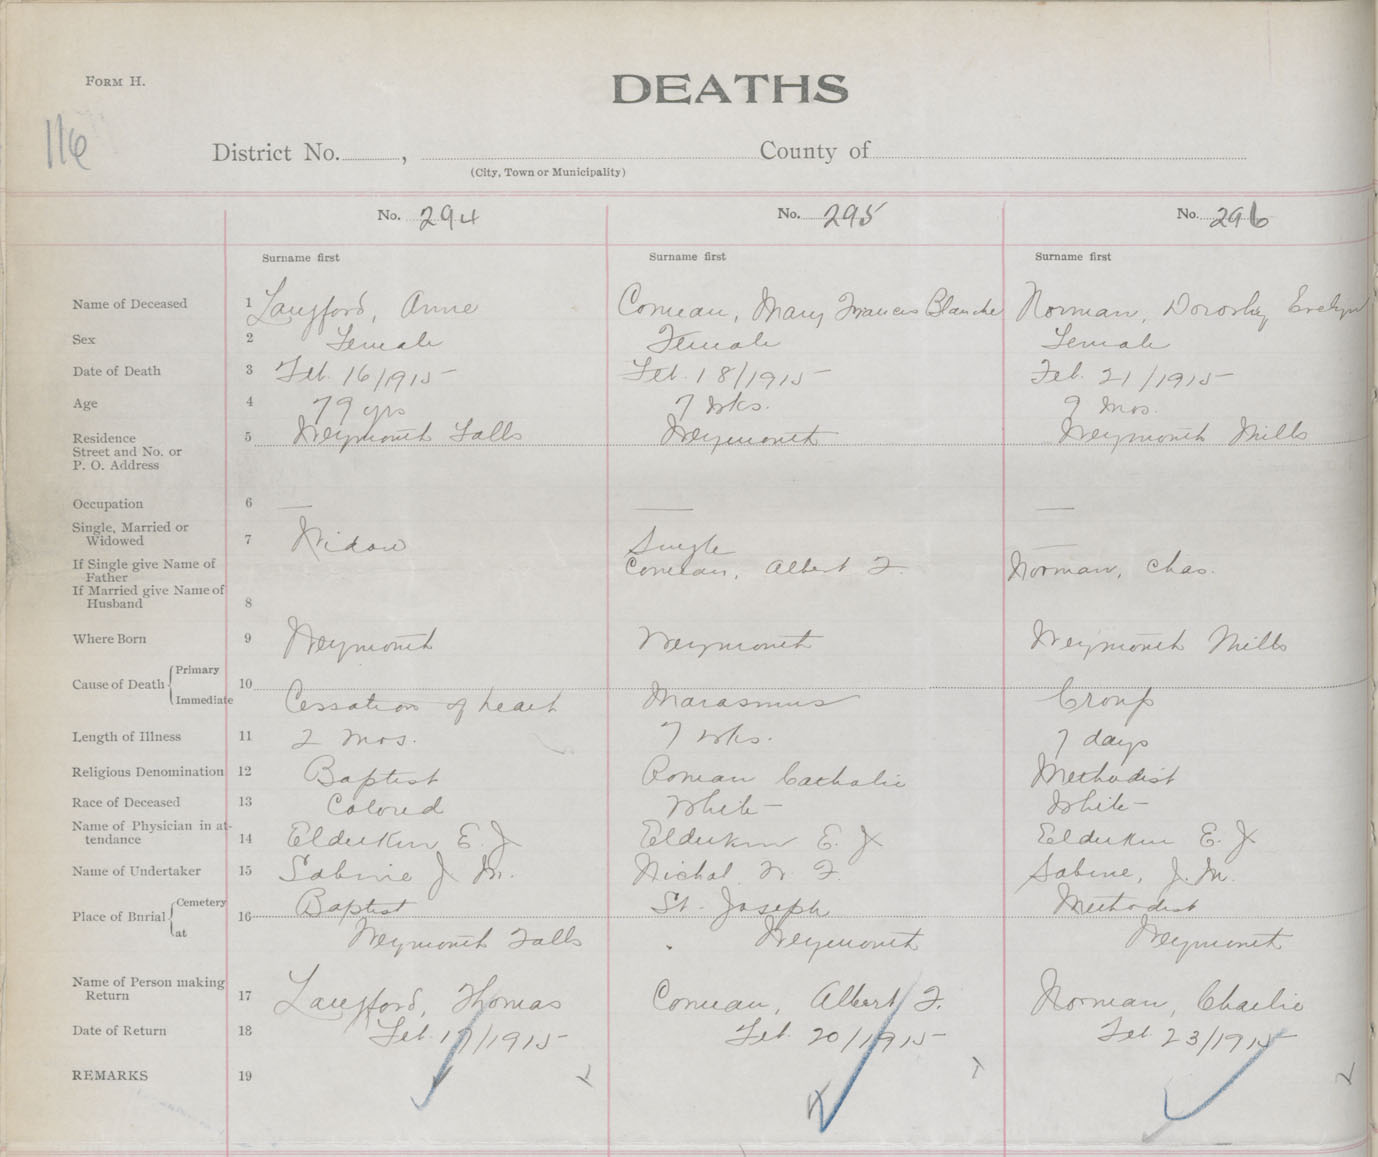 FORM H.
DEATHS
116
District No. , County of
(City, Town or Municipality)
No. 294 No. 295 No. 296
Surname first Surname first Surname first
Name of Deceased 1 Langford, Anne Comeau, Mary Frances Blanche Norman, Dorothy Evelyn
Sex 2 Female Female Female
Date of Death 3 Feb. 16/1915 Feb. 18/1915 Feb. 21/1915
Age 4 79 yrs 7 wks. 9 mos.
Residence 5 Weymouth Falls Weymouth Weymouth Mills
Street and No. or
P. O. Address
Occupation 6 — — —
Single, Married or
Widowed 7 Widow Single —
If Single give Name of
Father Comeau, Albert F. Norman, Chas.
If Married give Name of
Husband 8
Where Born 9 Weymouth Weymouth Weymouth Mills
Cause of Death Primary 10
Immediate Cessation of heart Marasmus Croup
Length of Illness 11 2 mos. 7 wks. 7 days
Religious Denomination 12 Baptist Roman Catholic Methodist
Race of Deceased 13 Colored White White
Name of Physician in at-
tendance 14 Elderkin E. J Elderkin E. J Elderkin E. J
Name of Undertaker 15 Sabine J. M. Nichol N. F. Sabine, J. M.
Place of Burial Cemetery 16 Baptist St. Joseph Methodist
at Weymouth Falls Weymouth Weymouth
Name of Person making
Return 17 Langford, Thomas Comeau, Albert F. Norman, Charlie
Date of Return 18 Feb. 17/1915 Feb. 20/1915 Feb. 23/1915
REMARKS 19